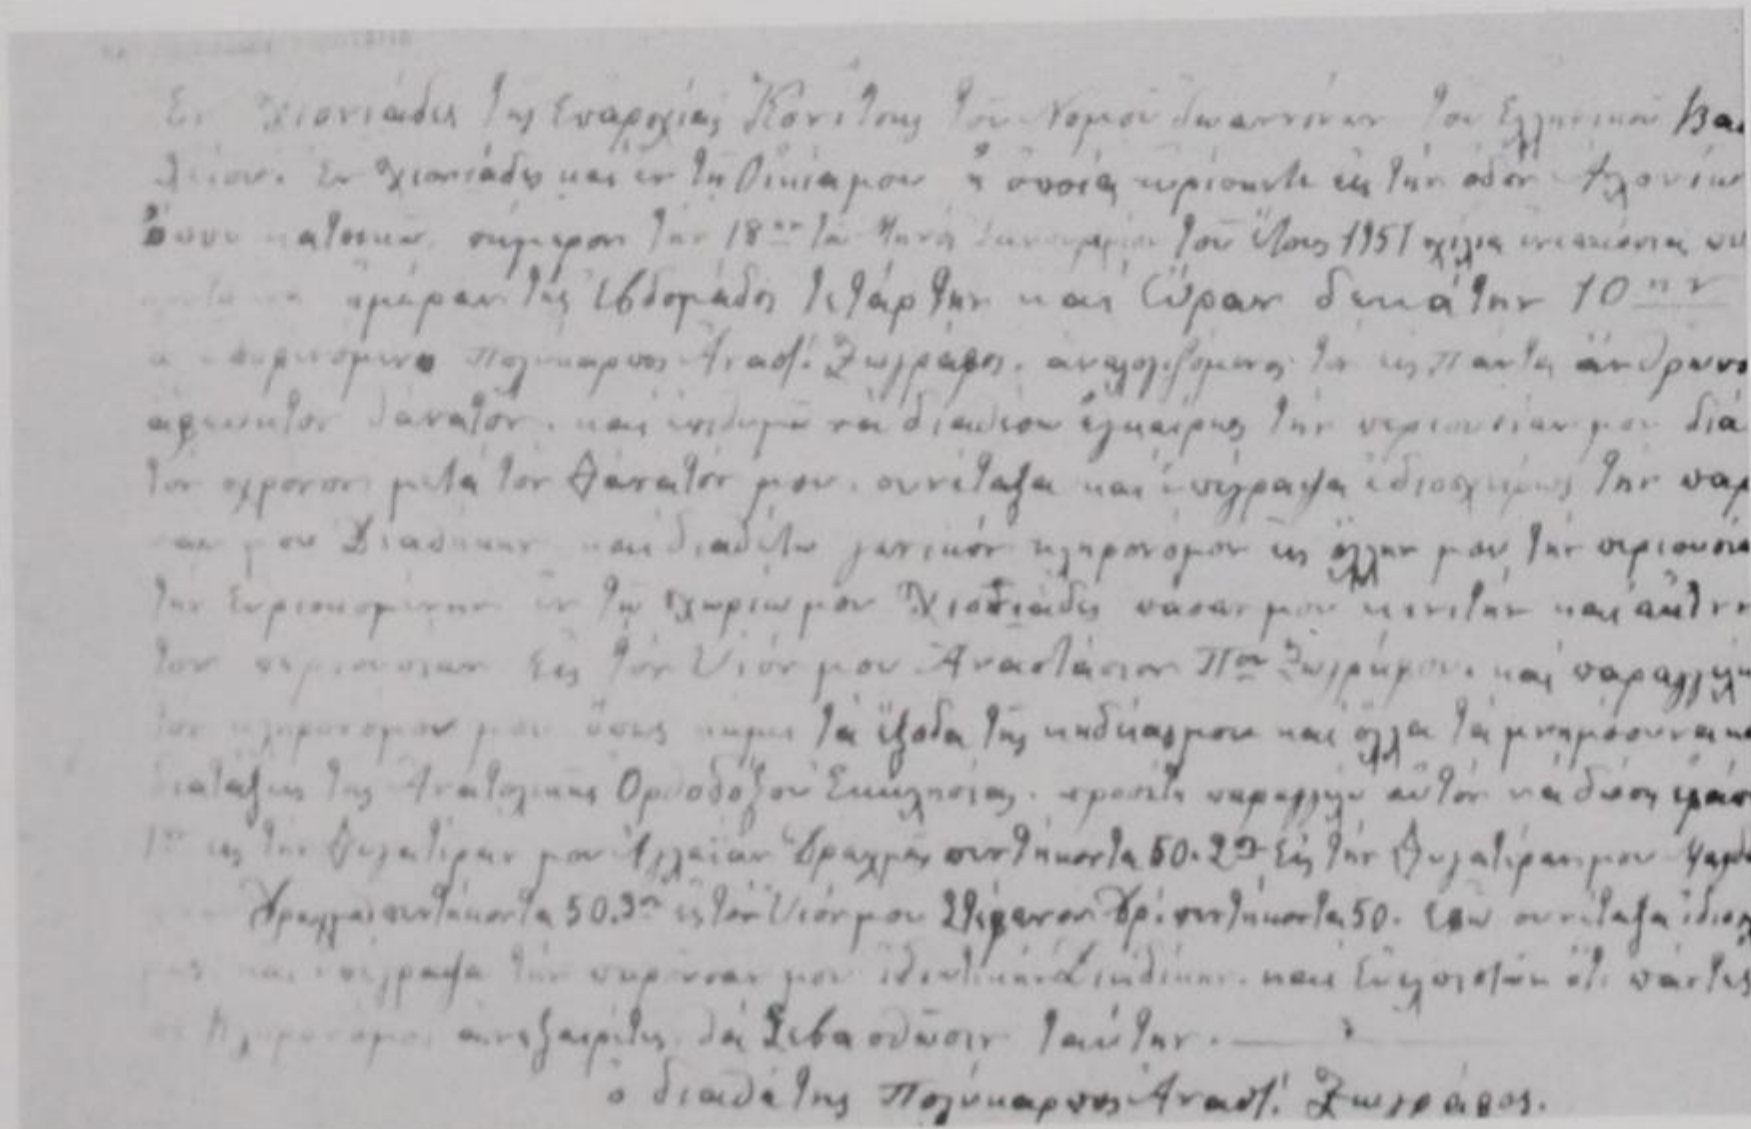 Ἐν Χιονιάδες τῆς Ἐπαρχίας Κονίτσης τοῦ Νομοῦ Ἰωαννίνων τοῦ Ἑλληνικοῦ Βα
λείου. Ἐν Χιονιάδες και ἐν τῆ Οἰκία μου ἡ ὁποία εὑρίσκετε εἰς την οδόν
ὅπου κατοικῶ, σήμερον την 18ην τοῦ Μηνός Ἰανουαρίου τοῦ Ἔτους 1951 χίλια ἐνιακόσια πε
ἡμέραν τῆς Ἑβδομάδος τετάρτην και Ὥραν δεκάτην 10 ην
ὁ Πολύκαρπος Ἀναστ. Ζωγράφος, ἀναλογιζόμενος τόν εἰς πάντα ἄνθρωπο
ἀφευκτον θάνατον, και ἐπιθυμῶ νά διαθέσω ἐγκαίρως την περιουσίαν μου διά
τον χρονον μετά τον θάνατόν μου, συνέταξα και ἐπέγραψα ἰδιοχείρως την παρ
σαν μου Διαθήκην και διαθέτω γενικόν κληρονόμον εἰς ὅλλην μου την περιουσία
την Ευρισκομένην ἐν τῶ χωρίω μου Χιονιάδες πασαν μου κινιτήν και ἀκίνη
τον περιουσιαν Εἰς τόν Υἱόν μου Ἀναστάσιον Πολ Ζωγράφου, και παραγγέλω
τον κληρονομον μου ὅπως καμει τά ἔξοδα τῆς κηδείας μου και ὅλλα τά μνημόσυνα κα
διατάξεις της Ἀνατολικῆς Ὀρθοδόξου Ἐκκλησίας. προσέτι παραγγέλω αὐτόν νά δώση
1ον εἰς την Θυγατέραν μου Δραχμάς πεντήκοντα 50. 2ον Εἰς την Θυγατέραν μου
Δραχμάς πεντήκοντα 50. 3ον εἰς τόν Υἱόν μου Στέφανον Δρ. πεντήκοντα 50. συνέταξα ἰδιοχ
και ἐπέγραψα την παρούσαν μου και Εὐελπιστῶ ὅτι πάντες
οἱ Κληρονόμοι ἀνεξαιρέτως θά Σεβασθῶσιν ταύτην.
ὁ διαθέτης Πολύκαρπος Ἀναστ. Ζωγράφος.